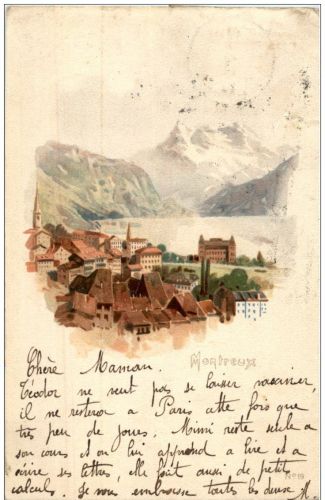 Montreux
Chère Maman.
Téodor ne veut pas se laisser
il ne restera a Paris cette fois que
très peu de jours. Mimi reste seule a
son cours et on lui apprend a lire et a
écrire ses lettres, elle fait aussi de petits
calculs. Je vous embrasse toutes les deux
No 19